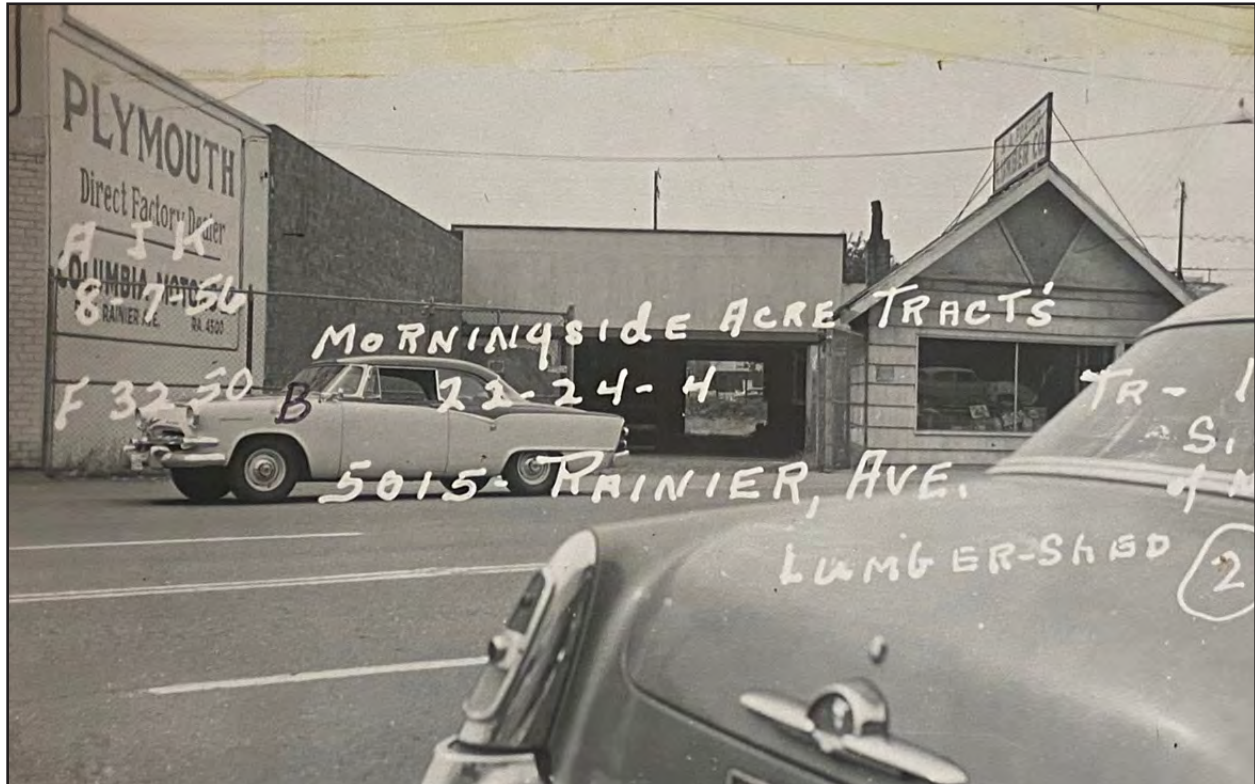 PLYMOUTH
Direct Factory Dealer
COLUMBIA MOTORS
RAINIER AVE. RA. 4500
LUMBER CO.
A I K
8-7-56
MORNINgsIdE ACRE TRACT'S
F 3250 B 22-24-4
TR- 1
S.
of N
5015- RAINIER, AVE.
LUMBER-ShED 2